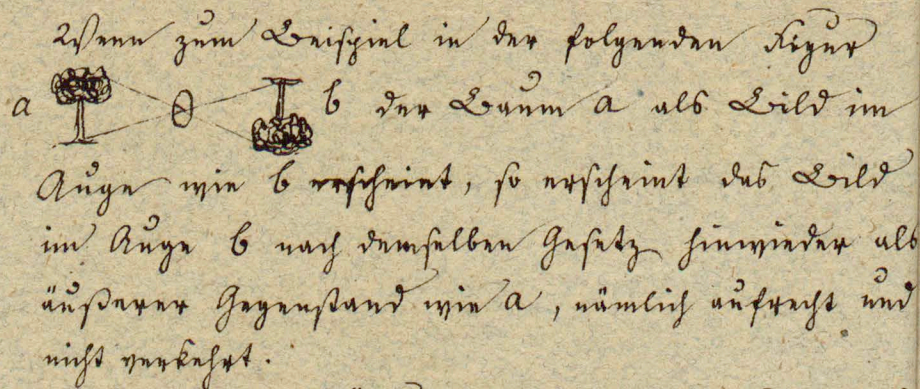 Wenn zum Beispiel in der folgenden Figur
a b der Baum a als Bild im
Auge wie b erscheint, so erscheint das Bild
im Auge b nach demselben Gesetz hinwieder als
äußerer Gegenstand wie a, nämlich aufrecht und
nicht verkehrt.